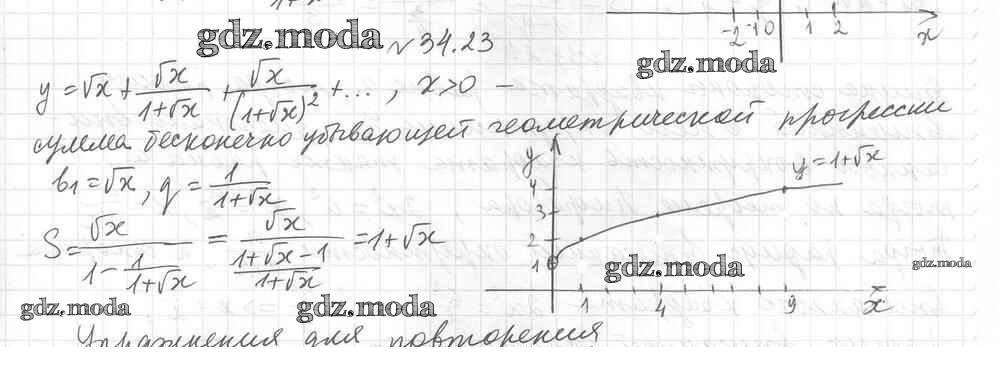 gdz.moda
№ 34.23
-2 -1 0 1 2 x
gdz.moda
y = √x + √x/(1+√x) + √x/(1+√x)² + ... , x>0 —
сумма бесконечно убывающей геометрической прогрессии
b₁ = √x, q = 1/(1+√x)
S = √x/(1 - 1/(1+√x)) = √x/((1+√x-1)/(1+√x)) = 1+√x
y
y = 1+√x
4
3
2
1
1 4 9 x
gdz.moda
gdz.moda
gdz.moda
gdz.moda
Упражнения для повторения